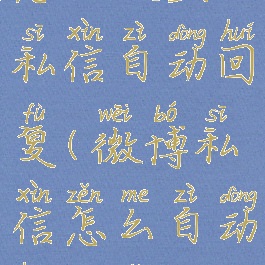 sī xìn zì dòng huí
私信自动回
fù wēi bó sī
复(微博私
xìn zěn me zì dòng
信怎么自动